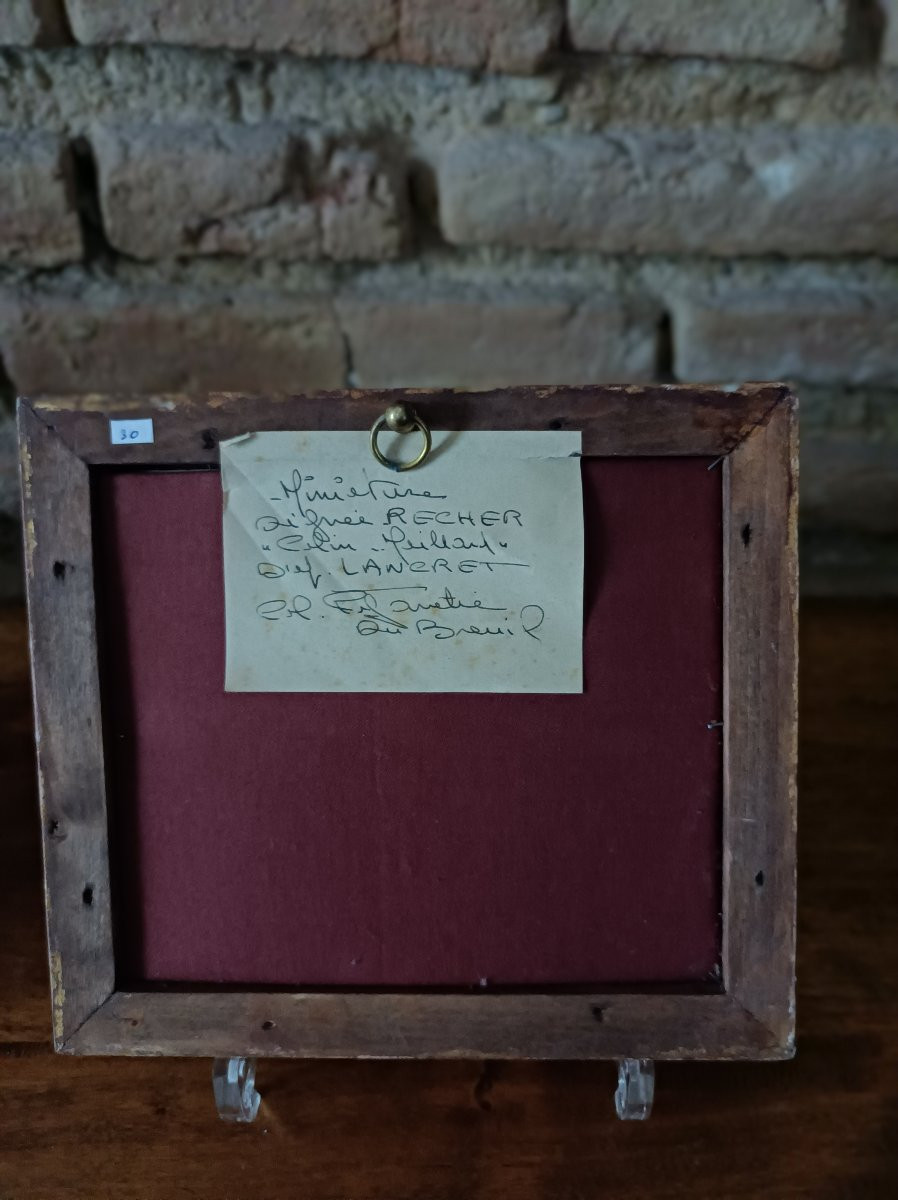 30
-Miniature
signée RECHER
"Colin-Maillard"
d'ap LANCRET
Col.
du Breuil